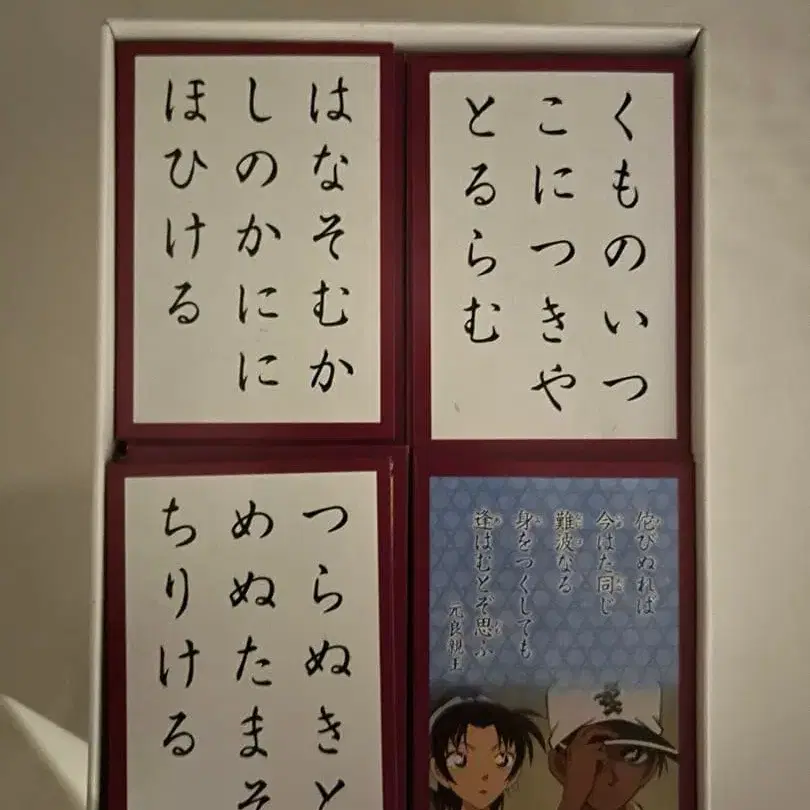 くものいつ
こにつきや
とるらむ
はなそむか
しのかにに
ほひける
侘びぬれば
今はた同じ
難波なる
身をつくしても
逢はむとぞ思ふ
元良親王
つらぬきと
めぬたまそ
ちりける